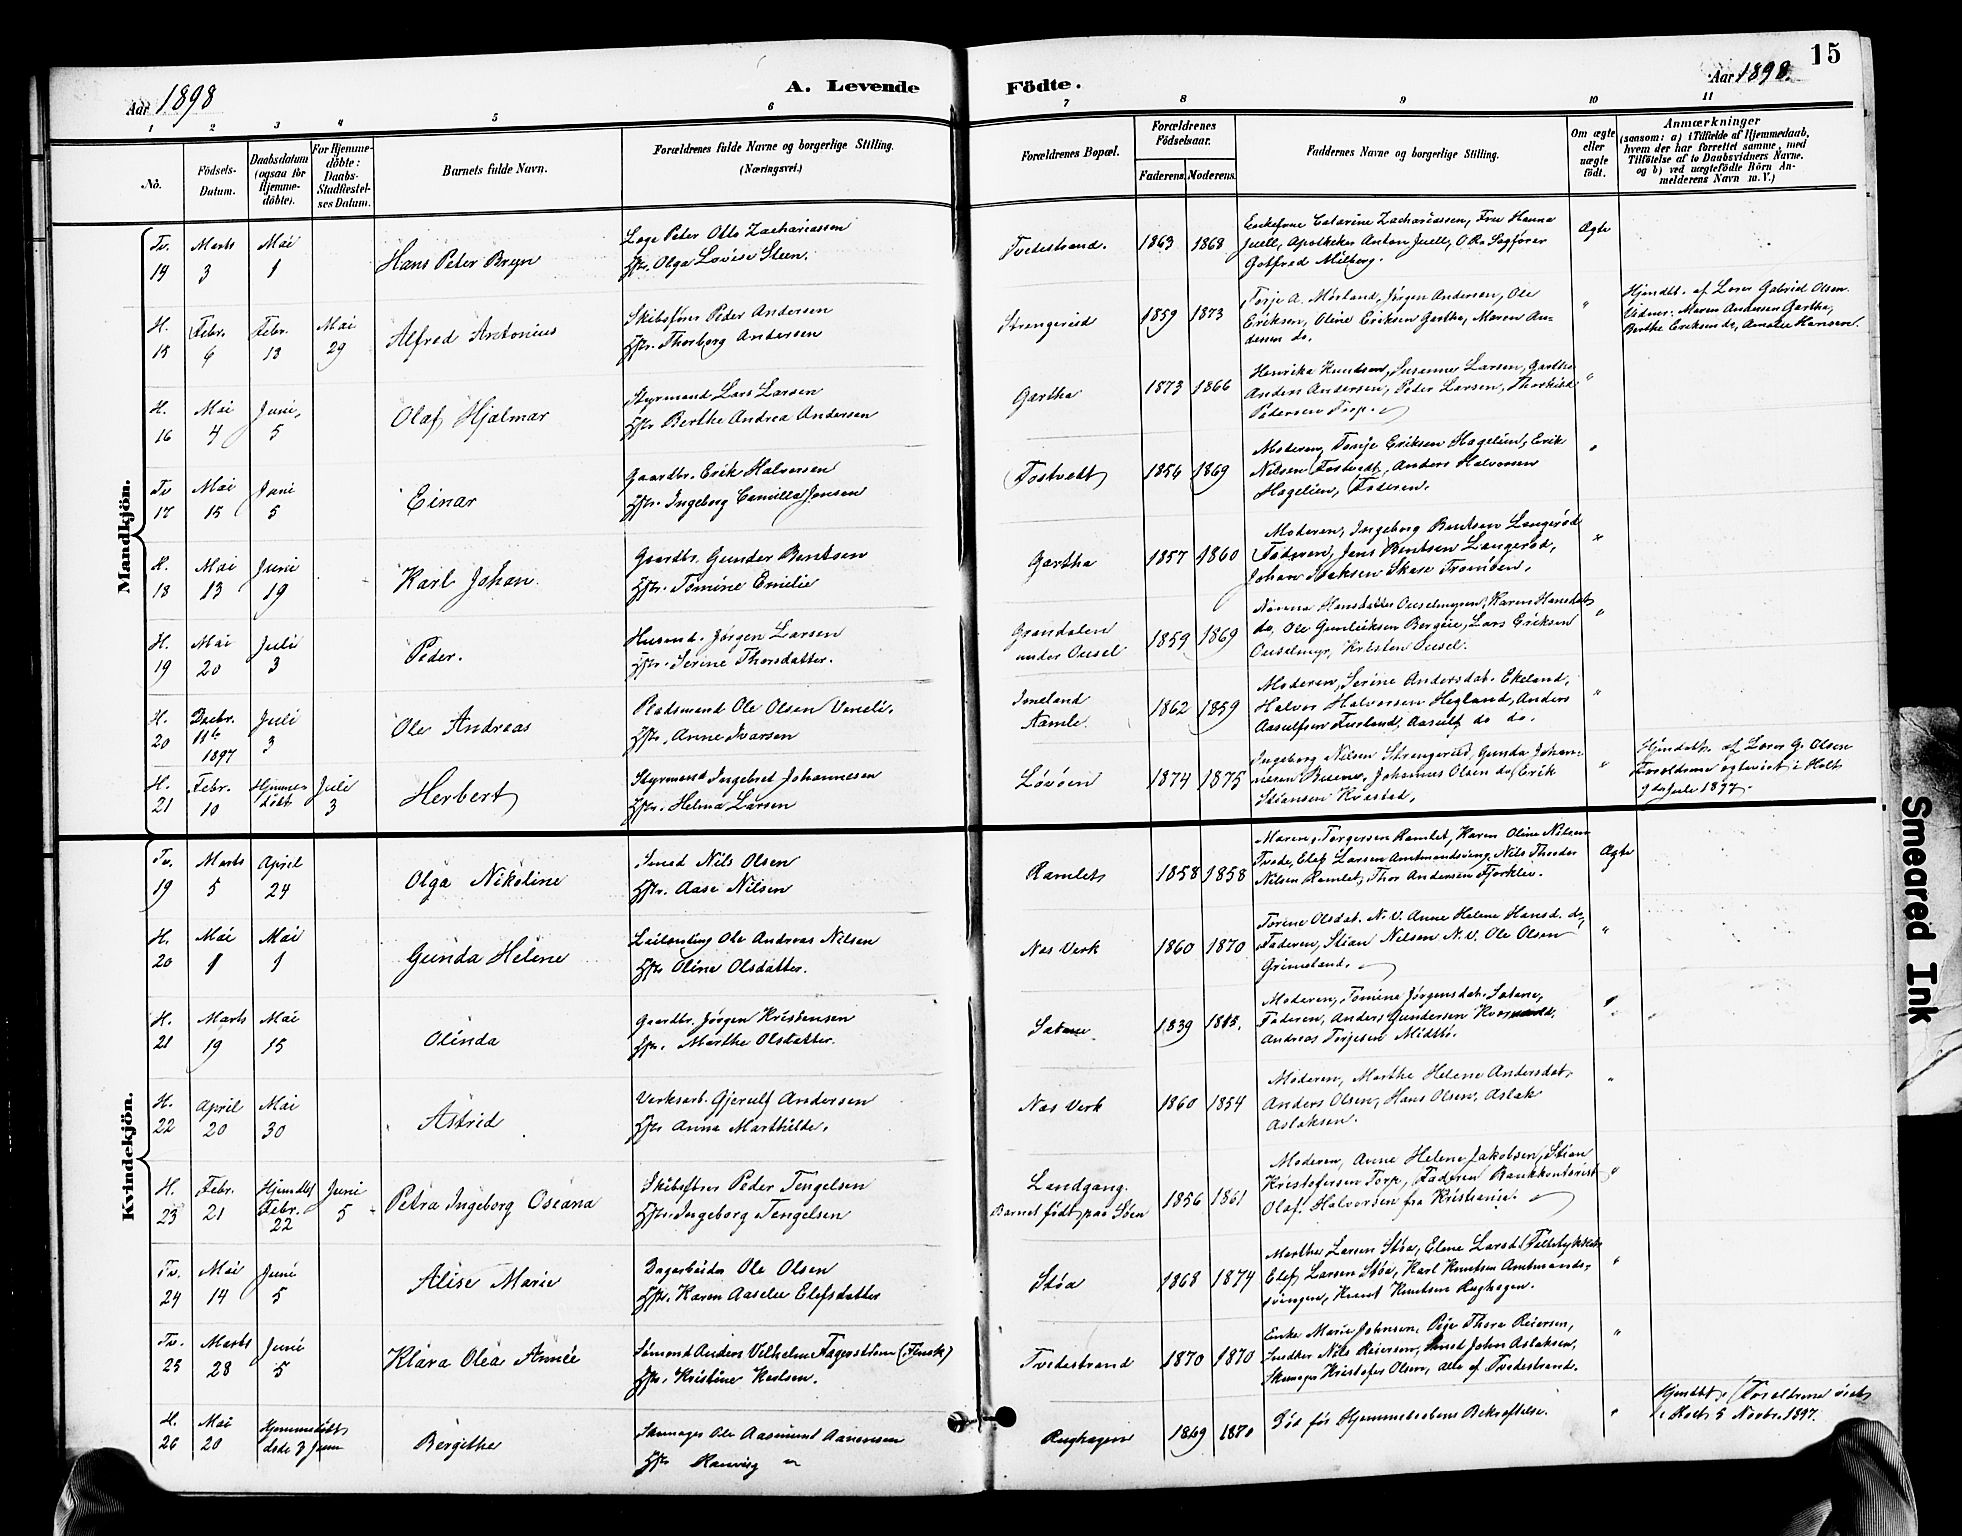 15
Aar 1898
A. Levende
Födte.
Aar 1898.
1 2 3 4 5 6 7 8 9 10 11
No.
Födsels-Datum.
Daabsdatum (ogsaa for Hjemme-döbte).
For Hjemme-döbte: Daabs-Stadfæstel-ses Datum.
Barnets fulde Navn.
Forældrenes fulde Navne og borgerlige Stilling.
(Næringsvei.)
Forældrenes Bopæl.
Forældrenes Födselsaar.
Faderens. Moderens.
Faddernes Navne og borgerlige Stilling.
Om ægte eller uægte födt.
Anmærkninger
(saasom: a) i Tilfælde af Hjemmedaab, hvem der har forrettet samme, med Tilföielse af to Daabsvidners Navne. og b) ved uægtefödte Börn An-melderens Navn m. V.)
Mandkjön.
Tv. 14 Marts 3 Mai 1 Hans Peter Bryn
Loge Peter Otto Zachariassen
Hstr. Olga Lovise Steen.
Tvedestrand. 1863 1868
Enkefrue Catarine Zachariassen, Frue Hanna
Juell, Apotheker Anton Juell, O.R. Sagfører
Gotfred Milberg.
Ægte
H. 15 Febr. 6 Febr. 13 Mai 29 Alfred Antonius
Skibsfører Peder Andersen
Hstr. Thorborg Andersen
Strengereid 1859 1873
Torje A. Mørland, Jørgen Andersen, Ole
Eriksen, Oline Eriksen Gartha, Maren An-
dersen do.
"
Hjemdbt. af Lærer Gabriel Olsen.
Vidner: Maren Andersen Gartha,
Berthe Eriksen do, Amalie Hansen.
H. 16 Mai 4 Juni, 5 Olaf Hjalmar
Styrmand Lars Larsen
Hstr Berthe Andrea Andersen
Gartha 1873 1866
Henrika Knudsen, Susanne Larsen, Gartha
Anders Andersen, Peter Larsen, Thorkild
Pedersen Torp.
"
Tv 17 Mai 15 Juni 5 Einar
Gaardbr. Erik Halvorsen
Hstr. Ingeborg Camilla Jensen
Tostvedt 1856 1869
Moderen, Torje Eriksen Hagelien, Erik
Nilsen Tostvedt, Anders Halvorsen
Hagelien, Faderen.
"
H. 18 Mai 13 Juni 19 Karl Johan.
Gaardbr. Gunder Bentsen
Hstr. Tomine Emelie
Gartha 1857 1860
Moderen, Ingeborg Bentsen Langerød
Faderen, Jens Bentsen Langerød,
Johan Isaksen Skase Tromøen,
"
H. 19 Mai 20 Juli 3 Peder.
Husmd. Jørgen Larsen
Hstr. Serine Thorsdatter.
Grendalen
under Ousel 1859 1869
Hansdatter Ouselmyren, Karen Hansdat.
do, Ole Gunleiksen Bergeie, Lars Eriksen
Ouselmyr, Kristen Ousel.
"
H. 20 Decbr. 11te 1897 Juli 3 Ole Andreas
Pladsmand Ole Olsen Veneli.
Hstr. Anne Ivarsen
Aamle. 1862 1859
Moderen, Serine Andersdat. Ekeland,
Halvor Halvorsen Hegland, Anders
Aasulfsen Fureland, Aasulf do do.
"
H. 21 Febr. 10 Hjemme-døbt Juli 3 Herbert
Styrmand Ingebret Johannesen
Hstr. Helma Larsen
Løvøen 1874 1875
Ingeborg Nilsen Strengereid, Gunda Johan-
nesen, Johannes Olsen do, Erik
Stiansen Kvastad,
"
Hjemdøbt af Lærer G. Olsen
Foreldrene egteviet i Holt
9de Juli 1897.
Kvindekjön.
Tv. 19 Marts 5 April 24 Olga Nikoline
Smed Nils Olsen
Hstr. Aase Nilsen
Ramlet 1858 1858
Maren Torgersen Ramlet, Karen Oline Nilsen
Tvede, Elef Larsen Amtmandsving, Nils Theodor
Nilsen Ramlet, Thor Andersen Fjorklev.
Ægte
H. 20 Mai 1 Mai 1 Gunda Helene
Leilending Ole Andreas Nilsen
Hstr Oline Olsdatter.
Næs Verk 1860 1870
Torine Olsdat. N.V. Anne Helene Hansd. do,
Faderen, Stian Nilsen N.V. Ole Olsen
Grimeland.
"
H. 21 Marts 19 Mai 15 Olinda
Gaardbr. Jørgen Kristensen
Hstr. Marthe Olsdatter.
Satane 1839
Moderen, Tomine Jørgensdat. Satane,
Faderen, Anders Gundersen
Andreas Torjesen Midtbø.
"
H. 22 April 20 Mai 30 Astrid
Verksarb. Gjerulf Andersen
Hstr Anna Marthilde.
Næs Verk 1860 1854
Moderen, Marthe Helene Andersdat,
Anders Olsen, Hans Olsen, Aslak
Aslaksen.
"
H. 23 Febr. 21 Hjemdbt Febr. 22 Juni 5 Petra Ingeborg Oseana
Skibsfører Peder Tengelsen
Hstr. Ingeborg Tengelsen
Landgang.
Barnet født paa Søen 1856 1861
Moderen, Anne Helene Jakobsen, Stian
Kristofersen Torp, Faderen Bankkontorist
Olaf Halvorsen fra Kristiania.
"
Tv. 24 Mai 14 Juni 5 Alise Marie
Dagarbeider Ole Olsen
Hstr. Karen Aaselie Elefsdatter
Støa 1868 1874
Marthe Larsen Støa, Elene Larsd.
Elef Larsen Støa, Karl Knutsen Amtmands-
svingen, Knut Knutsen Rughagen.
"
Tv. 25 Marts 28 Juni 5 Klara Olea Amée
Sømand Anders Vilhelm Fagerstrøm (Finsk)
Hstr. Kristine Karlsen.
Tvedestrand 1870 1870
Enke Marie Johnsen, Pige Thora Reiersen,
Snedker Nils Reiersen, Smed John Aslaksen,
Skomager Kristofer Olsen, alle af Tvedestrand.
"
H. 26 Mai 20 Hjemmedøbt døde 3 Juni Bergithe
Skomager Ole Aasmund Aanonsen
Hstr Ranveig "
Rughagen 1869 1870
Død før Hjemmedaabens Bekræftelse.
"
Hjemdbt, Foreldrene viet
i Holt 5 Novbr. 1897.
Smeared Ink